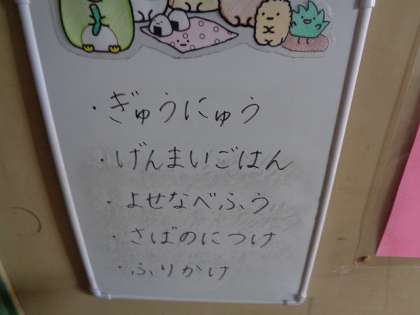 ・ぎゅうにゅう
・げんまいごはん
・よせなべふう
・さばのにつけ
・ふりかけ